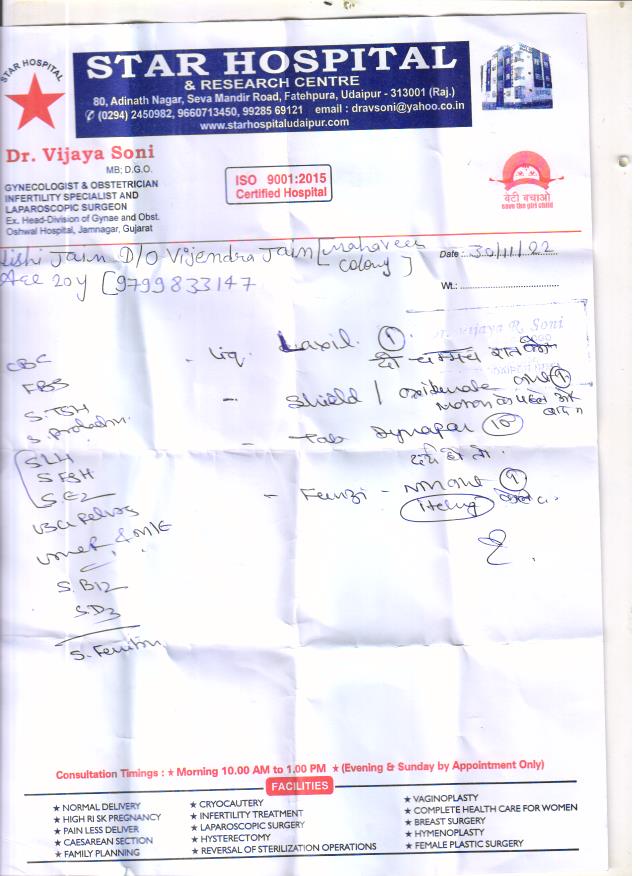 STAR HOSPITAL
STAR HOSPITAL
& RESEARCH CENTRE
80, Adinath Nagar, Seva Mandir Road, Fatehpura, Udaipur - 313001 (Raj.)
(0294) 2450982, 9660713450, 99285 69121 email : dravsoni@yahoo.co.in
www.starhospitaludaipur.com
Dr. Vijaya Soni
MB; D.G.O.
GYNECOLOGIST & OBSTETRICIAN
INFERTILITY SPECIALIST AND
LAPAROSCOPIC SURGEON
Ex. Head-Division of Gynae and Obst.
Oshwal Hospital, Jamnagar, Gujarat
ISO 9001:2015
Certified Hospital
बेटी बचाओ
save the girl child
Jain D/O Vijendra Jain [Mahaveer
Colony]
Date : 30/11/22
Age 20y [9799833147
Wt.:
Dr. Vijaya R. Soni
CBC
- Liq. Laxil. 1
दो चम्मच रात को
FBS
- Shield /
S. TSH
- Tab Dynapar 10
S LH
S FSH
- 1
S E2
S. B12
S. D3
Consultation Timings : ★ Morning 10.00 AM to 1.00 PM ★ (Evening & Sunday by Appointment Only)
FACILITIES
★ NORMAL DELIVERY
★ HIGH RISK PREGNANCY
★ PAIN LESS DELIVER
★ CAESAREAN SECTION
★ FAMILY PLANNING
★ CRYOCAUTERY
★ INFERTILITY TREATMENT
★ LAPAROSCOPIC SURGERY
★ HYSTERECTOMY
★ REVERSAL OF STERILIZATION OPERATIONS
★ VAGINOPLASTY
★ COMPLETE HEALTH CARE FOR WOMEN
★ BREAST SURGERY
★ HYMENOPLASTY
★ FEMALE PLASTIC SURGERY